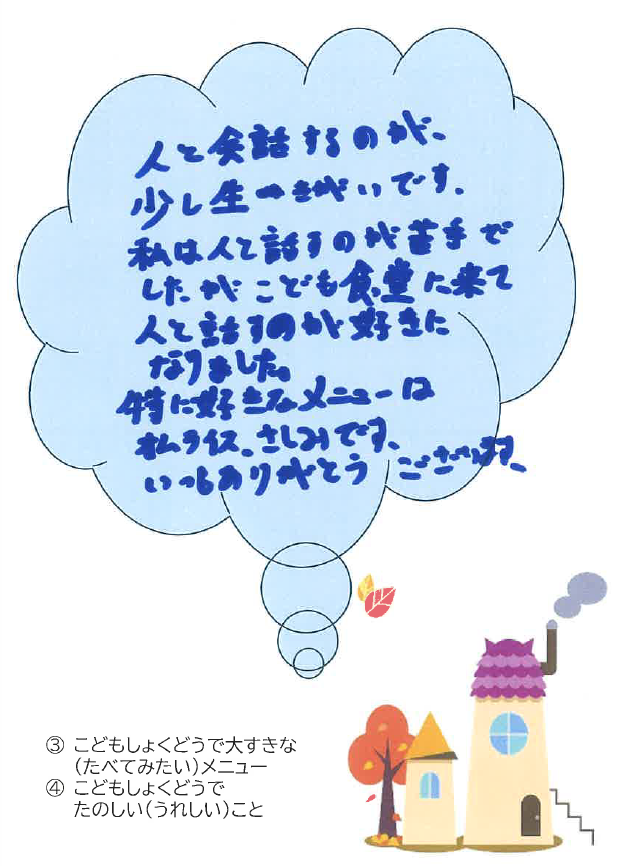 人と会話するのが、
少し生ーきがいです.
私は人と話すのが苦手で
したがこども食堂に来て
人と話すのが好きに
なりました。
特に好きなメニューは
オムライス、さしみです、
いつもありがとうございます、
③ こどもしょくどうで大すきな
（たべてみたい）メニュー
④ こどもしょくどうで
たのしい（うれしい）こと